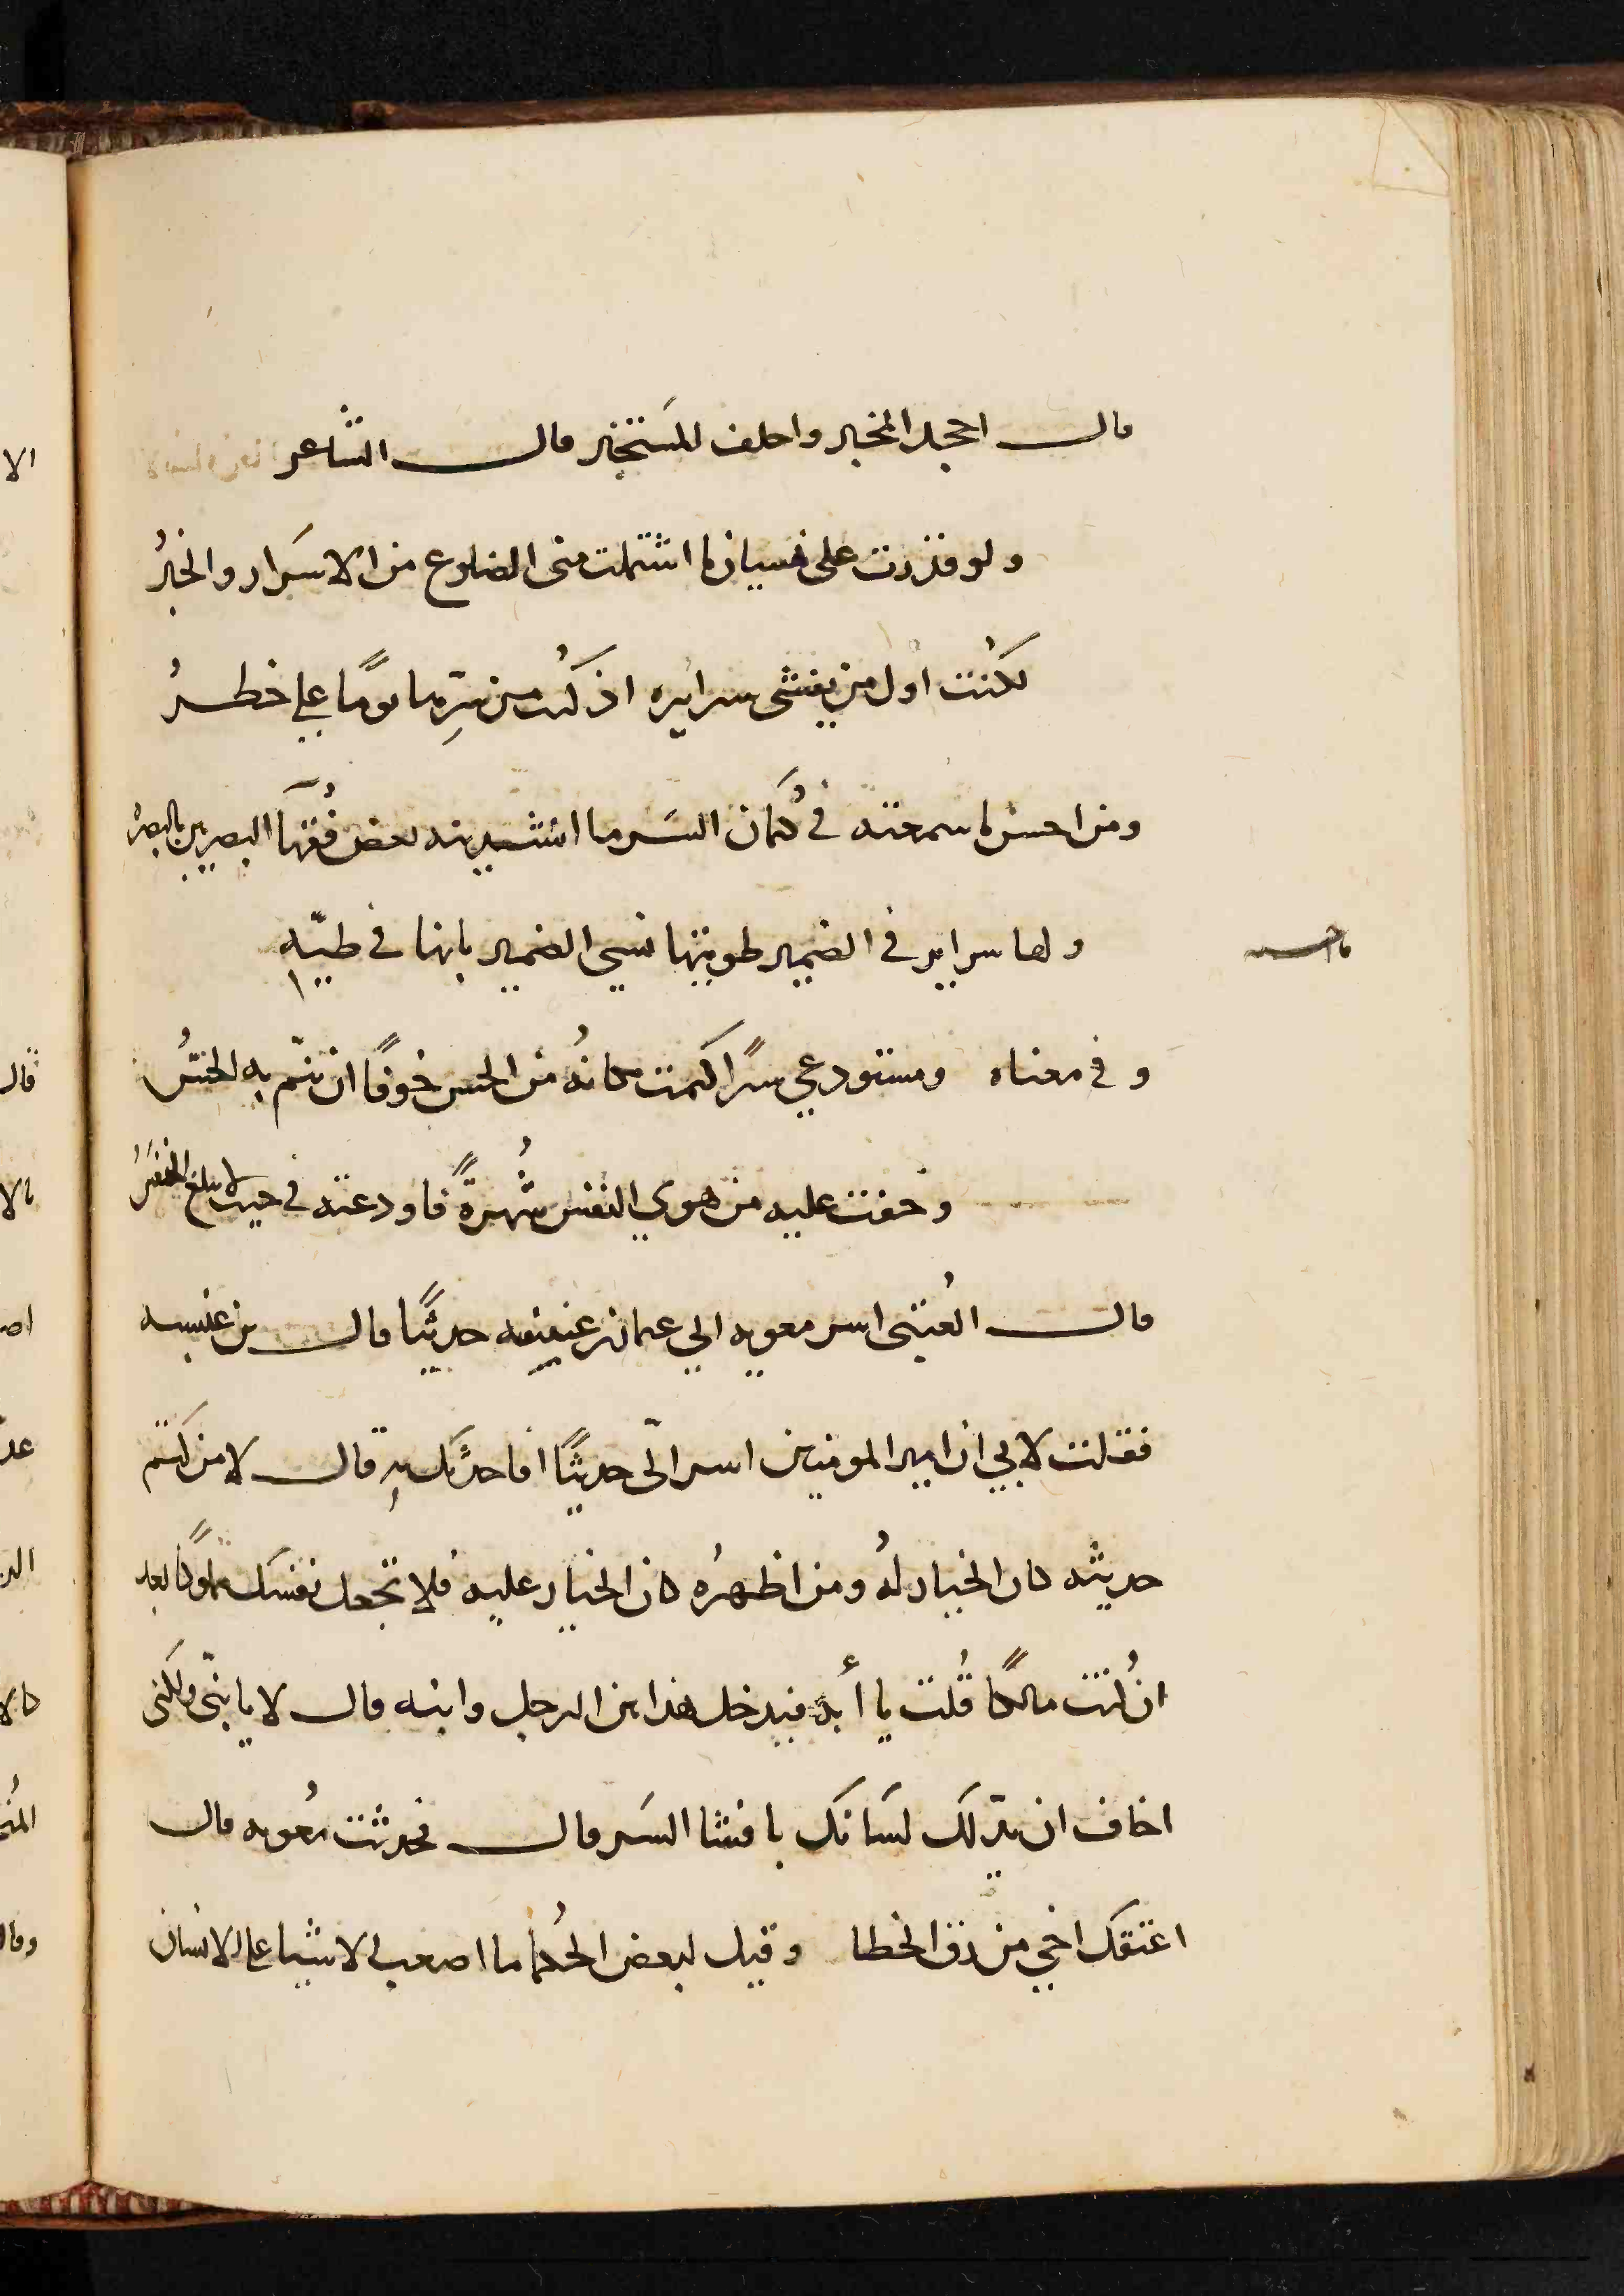 قال احجد المخبر واحلف للمستخبر قال الشاعر
ولو قدرت على نسيان ما اشتملت منى الضلوع من الاسرار والخبرُ
لكُنت اول من يفشى سرايره اذ كنُت من سرِّها يومًا علي خطرُ
ومن احسن ما سمعته في كُتمان السَر ما انشدنيه بعض فُقهآ البصريين بالبصره
ولها سراير في الضمير طويتها نسي الضمير بانها في طيّه
وفي معناه ومستودعي سرًا كتمت مكانُه من الحس خوفًا ان ينّم به الحسُ
وخفت عليه من هوي النفس شُهرةً فاودعته في حيث لا يبلغ النفسُ
قال العُتبى اسر معويه الي عمان بن عنبسه حديثًا قال بن عنبسه
فقلت لابي ان امير المومنين اسر الّى حديثًا افاحدثك بهِ قال لا من كتم
حديثه كان الخيار لهُ ومن اظهرُه كان الخيار عليه فلا تجعل نفسك مملوكًا بعد
ان كُنت مالكًا قُلت يا أبه فيدخل هذا بين الرجل وابنه قال لا يا بنّى ولكنى
اخاف ان يذّلك لسَانك بافشا السَر قال فحدثت مُعويه قال
اعتقك اخي من رق الخطا وقيل لبعض الحُكما ما اصعب الاشيا على الانسان